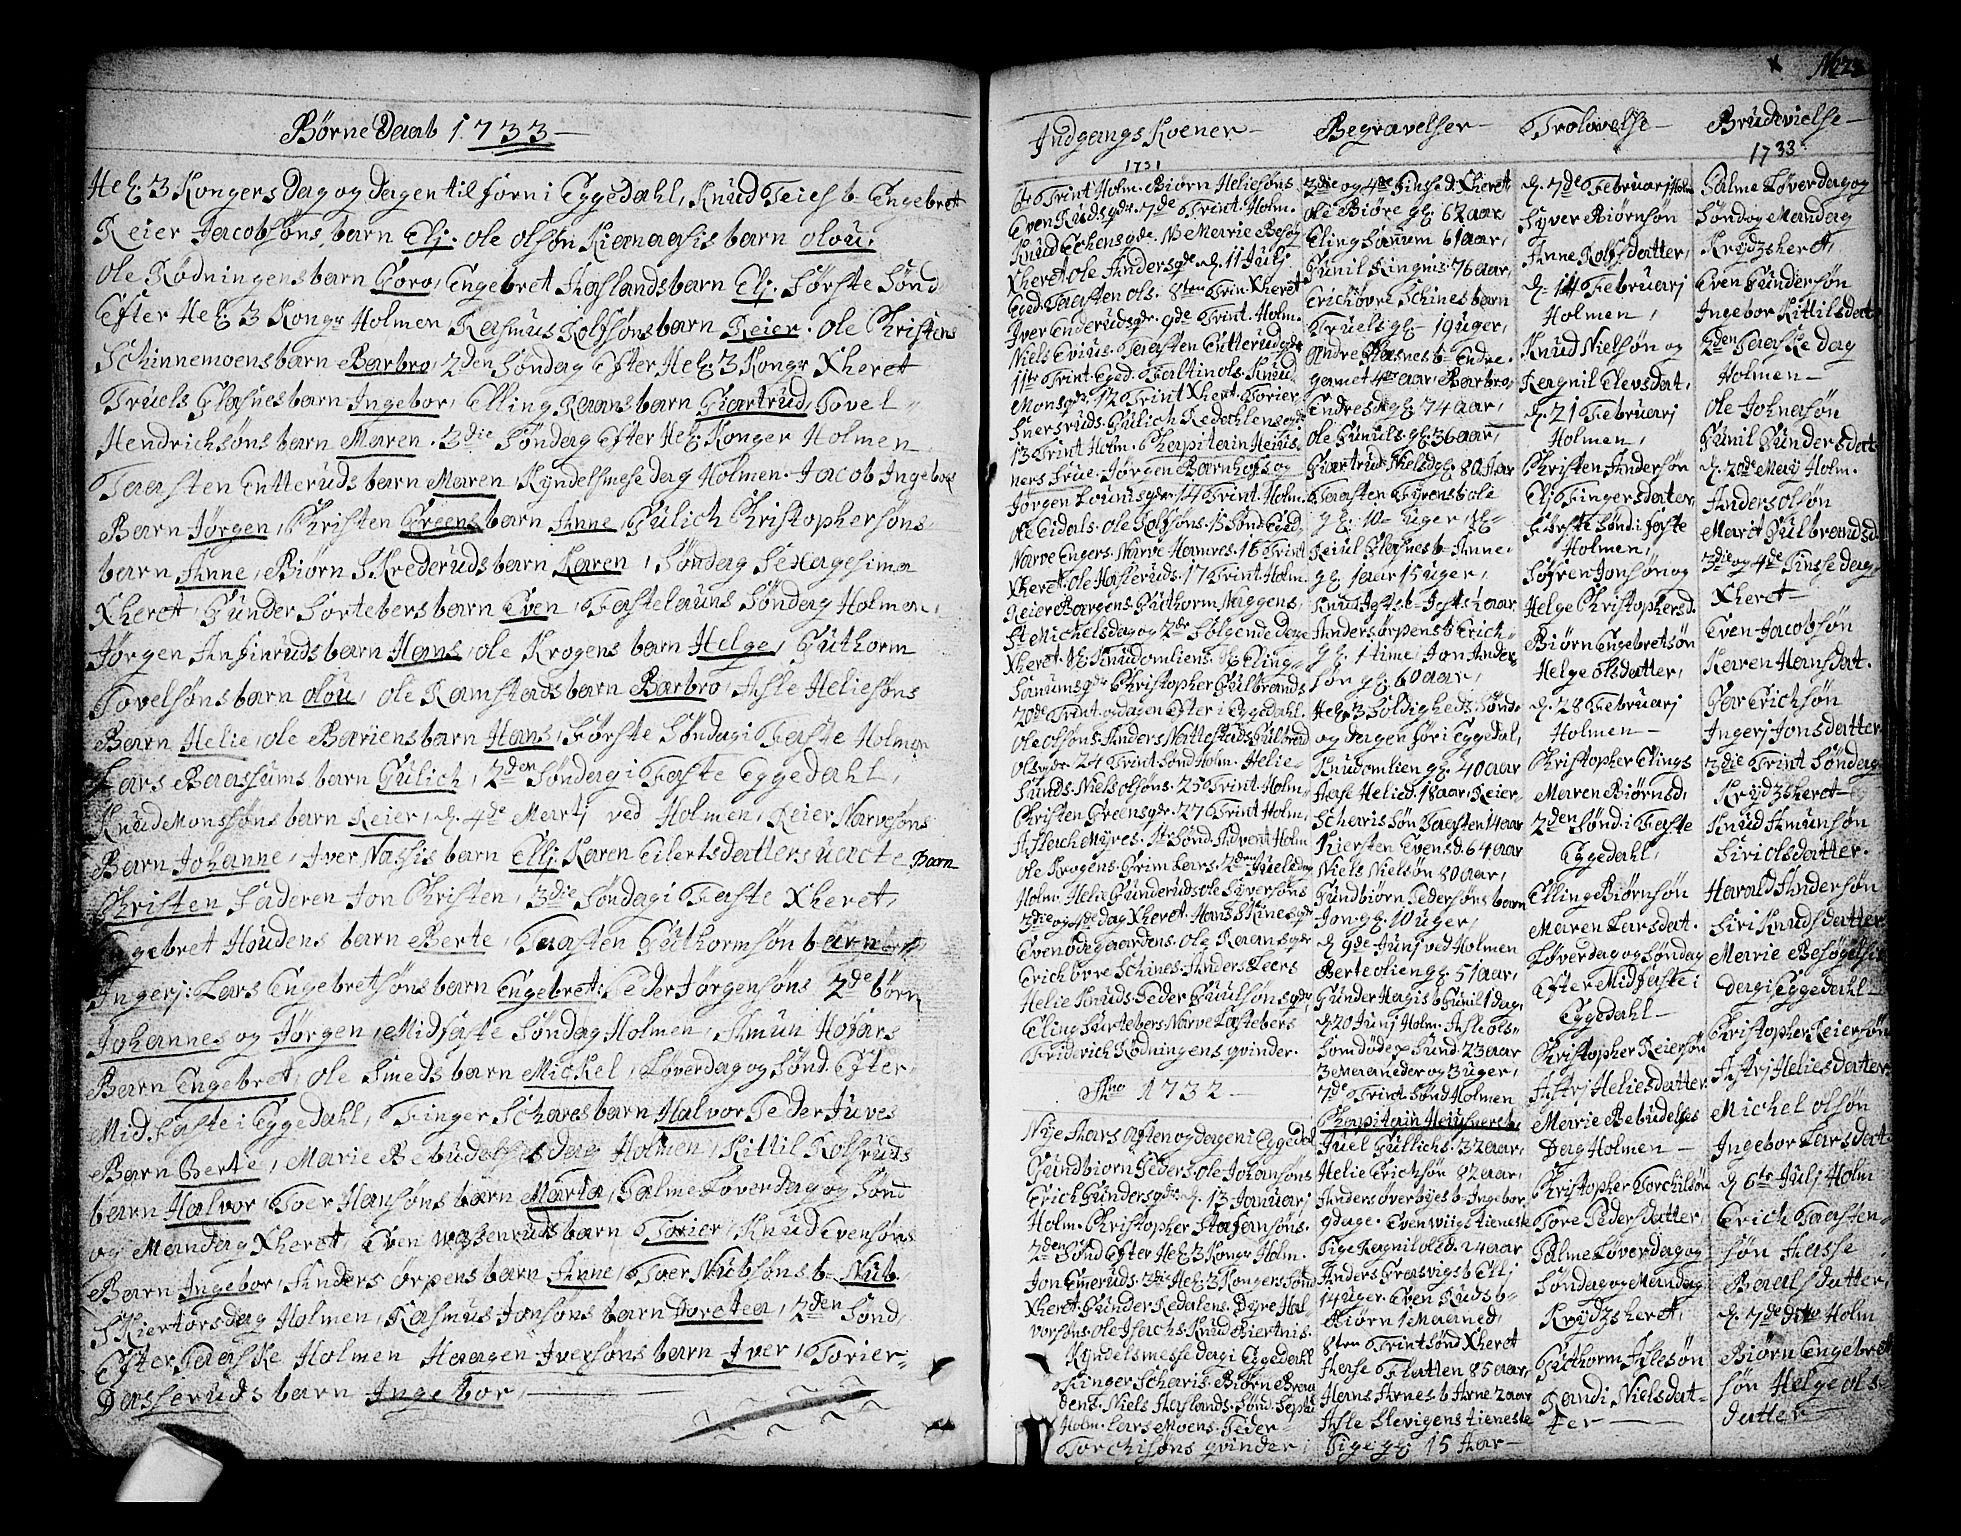 Børne Daab 1733
Hel: 3 Kongers Dag og dagen til forn i Eggedahl, Knud Teies b. Engebret
Reier Jacobsøns barn Elj. ole olsøn barn olou,
ole Rødningens barn Goro, Engebret Aaslands barn Elj. Første Sønd.
Efter Hel: 3 Kongr Holmen, Rasmus Rolfsøns barn Reier. ole Christens
Schinnemoens barn Barbro, 2den Søndag Efter Hel: 3 Kongr Xheret
Truels Glasnes barn Ingebor, Elling Raans barn Giartrud, Tovel
Hendrichsøns barn Maren. 3die Søndag Efter Hel: Konger Holmen
Taasten Eutteruds barn Maren, Kyndelsmese dag Holmen. Jacob Ingebors
Barn Jørgen, Christen Greens barn Anne, Gulich Christophersøns
barn Anne, Biørn Skrederuds barn Karen, Søndag Sexagesima
Xheret, Gunder Sortebers barn Even, Fastelauns Søndag Holmen,
Jørgen Anfinruds barn Hans, ole Krogens barn Helge, Guthorm
Tovelsøns barn olou, ole Ramstads barn Barbro, Asle Heliesøns
Barn Helie, ole Bæriens barn Hans, Første Søndag i Faste Holmen
Lars Baassums barn Gulich, 2den Søndag i Faste Eggedahl,
Knud Monssøns barn Reier, d. 4de Martj ved Holmen, Reier Narvesøns
Barn Johanne, Iver Nassis barn Elj. Karen Eilertsdatters uæcte Barn
Christen Faderen Jon Christen, 3die Søndag i Faste Xheret,
Engebret Houdens barn Berte, Taasten Guthormsøn barn
Ingerj: Lars Engebretsøns barn Engebret: Peder Jørgensøns 2de børn
Johannes og Jørgen, Midfaste Søndag Holmen, Amun Høvars
Barn Engebret, ole Smeds barn Mickel, Løverdag og Sønd. Efter
Midfaste i Eggedahl, Finger Schares barn Halvor Peder Juves
Barn Berte, Marie Bebudelses dag Holmen, Kittil Kolsruds
barn Halvor, Toer Hansøns barn Marta, Palme Løverdag og Sønd
og Mandag Xheret, Even barn Torier, Knud Evensøns
Barn Ingebor, Anders ørpens barn Anne, Toer Nubsøns b. Nub
Skiertorsdag Holmen, Rasmus Jonsøns barn Dorctea, 2den Sønd,
Efter Paaske Holmen Haagen Iversøns barn Iver, Torier
Dasseruds barn Ingebor,
Indgangs Koener
1731
6te Trint. Holm. Biørn Heliesøns
Even Rudsgdr. 7de Trint. Holm.
NB Marie Besøg
Xheret ole Anders d. 11 Julj
8ten Trin. Xheret
Iver Enderuds gdr. 9de Trint. Holm.
Niels Evius. Taasten Eutterudgdr
11te Trint. Eged. Knud
Monsgdr. 12 Trint Xheret. Torier
13 Trint Holm. Chapitain
ners Frue. Jørgen Barnhols og
14 Trint. Holm
ole Eidals. ole Tolfsøns. 15 Sønd. Eged.
Narve Engers. Narve Hamres. 16 Trint
Xheret. ole Hasleruds. 17 Trint Holm.
Reier Guthorm
St Michelsdag og 2der følgende dage
Xheret. Knudomliens. Eling
Christopher Gulbrands
20de Trint. og dagen Efter i Eggedahl.
ole olsøns. Anders Nattestuds
24 Trint Sønd Holm. Helie
Niels olsøns. 25 Trint Holm.
Christen Greensgdr. 27 Trint Holm,
1te Sønd. Advent Holm
ole Krogens. Grim Lars. 2den Juelsdag
3die og 4de dag Xheret. Hans
Even ødegaardens. ole Raansgdr
Erich øvre Schines. Anders Teers
Helie Knuds. Peder Paulsønsgdr
Eling Surtebers. Narve Lastebers
Friderich Rødningens qvinder.
Ano 1732
Nye Aars aften og dagen i Eggedal
Gundbiorn Peders. ole Johansøns
Erich Gundersgdr. d. 13 Januarj
Holm. Christopher Stafansøns.
2den Sønd Efter Hel: 3 Kongr Holm.
Jon Emeruds. 3die Hel: 3 Kongers Sønd
Xheret. Gunder Redalens. Dyre Hal
vorsøns. ole Isachs. Knud Biertnis.
Kyndelsmessedag i Eggedahl
Finger Scharis. Biørn Braa
dens. Niels Aaslands. Sønd. Sept
Holm. Lars Moens. Peder
Torchisøns qvinder,
Begravelser
3die og 4de Pinsed. Xheret
ole Biøre gl. 62 aar,
Eling Sanum 61 aar,
Gunil Ringnis 76 aar,
Erichøvre Schines barn
Truels gl. 19 uger,
Andre Glasnes b. Endre
gamel 4re aar, Barbro
Endresd. gl. 74 aar,
ole Gunuls gl. 36 aar,
Giartrud Nielsd. gl. 80 aar
Taasten b. ole
gl. 10 uger,
Reiul Glasnes b. Anne
gl. 1 aar 15 uger,
Knus b.
Anders ørpens b. Erich
gl. 1 time, Jon Ander
søn gl. 60 aar,
Hel: 3 foldigheds Sønd.
og dagen før i Eggedal,
Knudomlien gl. 40 aar
Aase Helied. 18 aar, Reier
Scharis Søn Taasten 14 aar
Kiersten Evensd. 64 aar
Niels Nielsøn 80 aar,
Gundbiørn Pedersøns barn
Jon gl. 10 uger,
d. 9de Junj ved Holmen
Berte olien gl. 51 aar,
Gunder Hagis b. Gunil 1 dag,
d. 20 Junj Holm. Asle ols.
som døde p Sund. 23 aar
3 Maaneder og 3 uger,
7de Trint Sønd Holmen
Chapitain
Juel Gullichs. 32 aar,
Helie Erichsøn 82 aar,
Anders overbyes b. Ingebor
9 dage. Even wiigs tieneste
Pige Ragnil olsd. 24 aar
Anders Græsvigs b. Elj
14 uger. Even Ruds b.
Biørn 1 Maaned,
8ten Trint Sønd Xheret
Aase Flatten 85 aar,
Hans Arnes b. Arne 2 aar
Asle Slevigens tieneste
Pige gl. 15 Aar
Trolovelse
d. 7de Februarj Holm
Syver Biørnsøn
Anne Rolfsdatter,
d. 14 Februarj
Holmen,
Knud Nielsøn og
Ragnil Elevsdat,
d. 21 Februarj
Holmen,
Christen Andersøn
Elj Fingersdatter,
Første Sønd: i Faste
Holmen,
Søfren Jonsøn og
Helge Christophersd.
Biørn Engebretsøn
Helge olsdatter,
d. 28 Februarj
Holmen
Christopher Elings
Maren Biørnsd,
2den Sønd: i Faste
Eggedahl,
Elling Biørnsøn
Maren Larsdat.
Løverdag og Søndag
Efter Midfaste i
Eggedahl
Christopher Reiersøn
Astrj Heliesdatter
Marie Bebudelses
Dag Holmen
Christopher Torchildsøn
Tore Pedersdatter,
Palme Løverdag og
Søndag og Mandag
Krydzsheret,
Guthorm Aslesøn
Randi Nielsdat
ter
Brudevielse
1733
Palme Løverdag og
Sønd og Mandag
Krydzsheret,
Even Gundersøn
Ingebor Kittilsdat
2den Paaske dag
Holmen
ole Johnasøn
Gunil Gundersdat
d. 20de Maij Holm.
Anders olsøn
Marit Gulbrandsd.
3die og 4de Pinse dag
Xheret
Even Jacobsøn
Karen Hansdat.
Erichsøn
Ingerj Jonsdatter
3die Trint Søndag
Krydzsheret
Knud Amunsøn
Siri olsdatter.
Harald Andersøn
Siri Knudsdatter
Marie Besøgelsis
dag i Eggedahl
Christopher Reiersøn
Astrj Heliesdatter
Michel olsøn
Ingebor Larsdat.
d. 6te Julj Holm
Erich Taasten
søn Aasse
d. 7de dito Holm
Biørn Engebret
søn Helge ols
datter